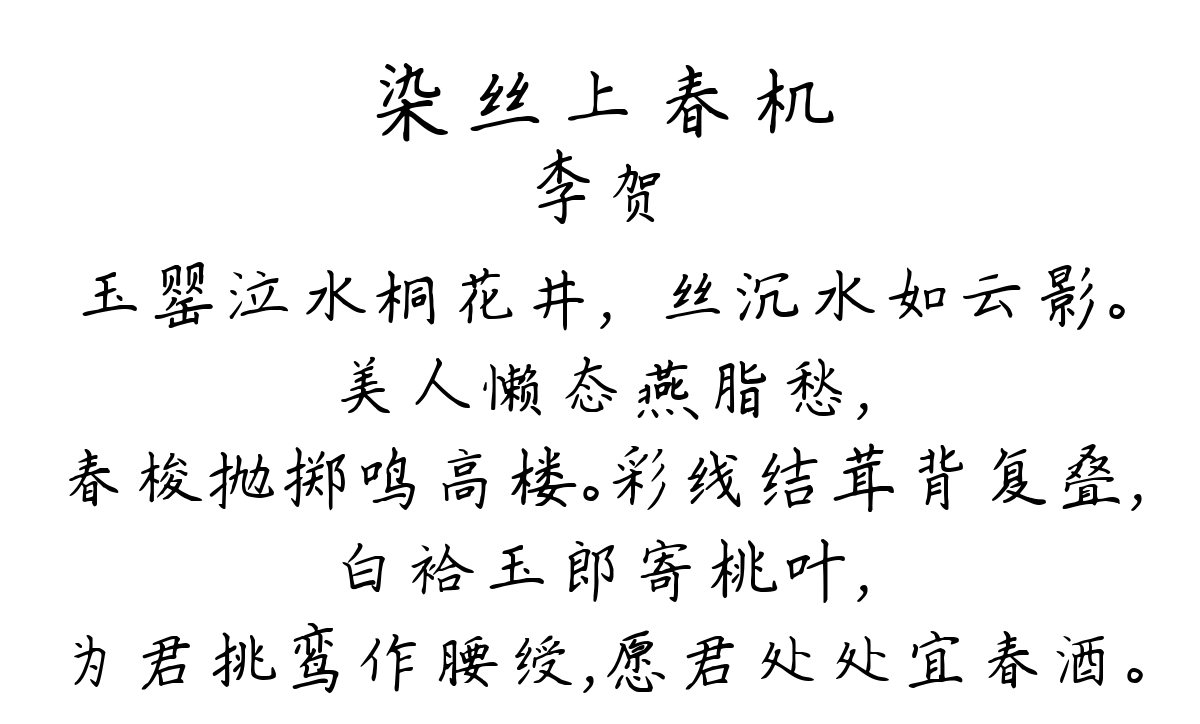 染丝上春机
李贺
玉罂泣水桐花井，丝沉水如云影。
美人懒态燕脂愁，
春梭抛掷鸣高楼。彩线结茸背复叠，
白袷玉郎寄桃叶，
为君挑鸾作腰绶，愿君处处宜春酒。